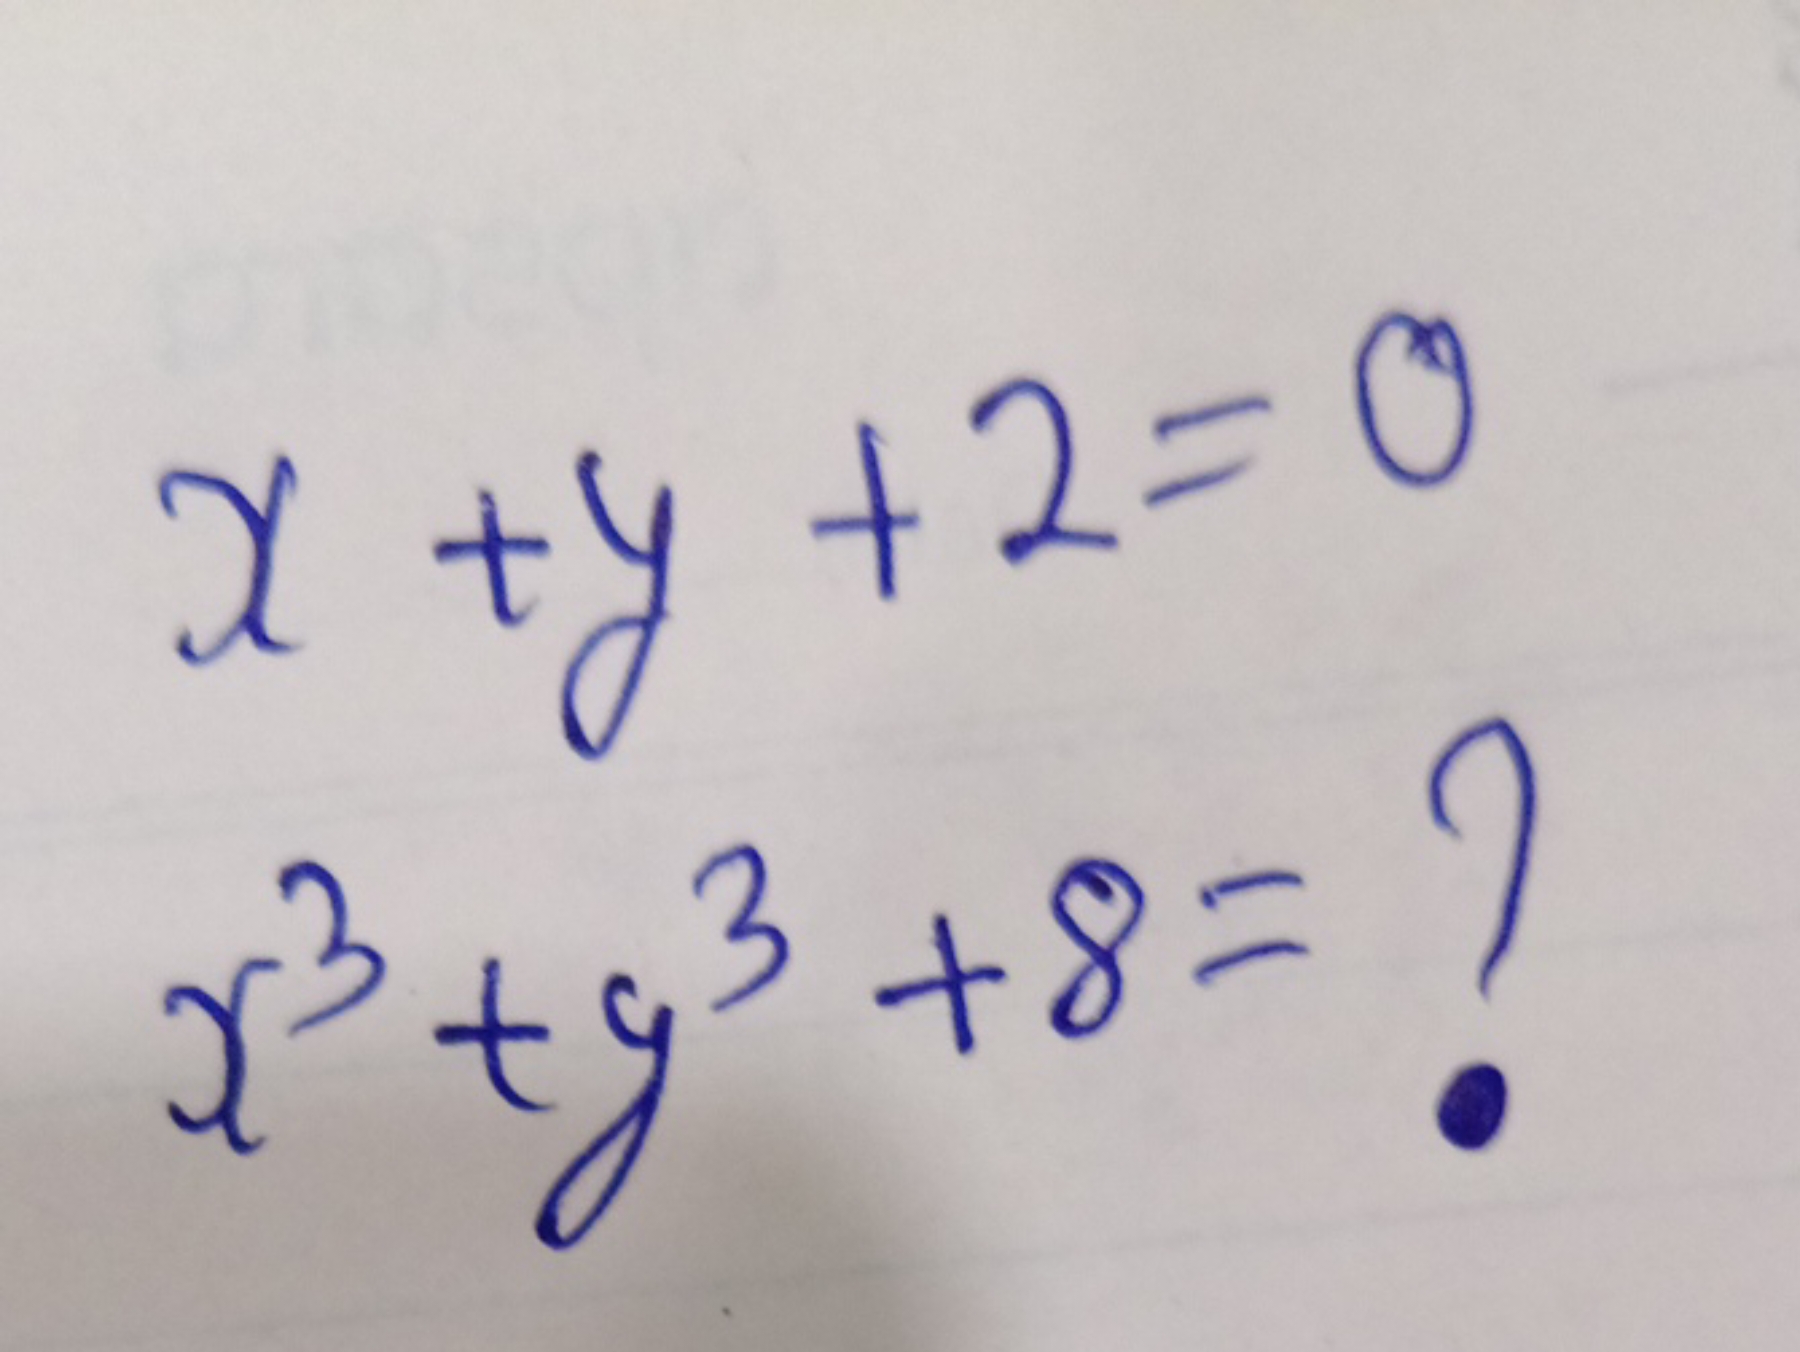 x + y + 2 = 0
x³ + y³ + 8 = ?